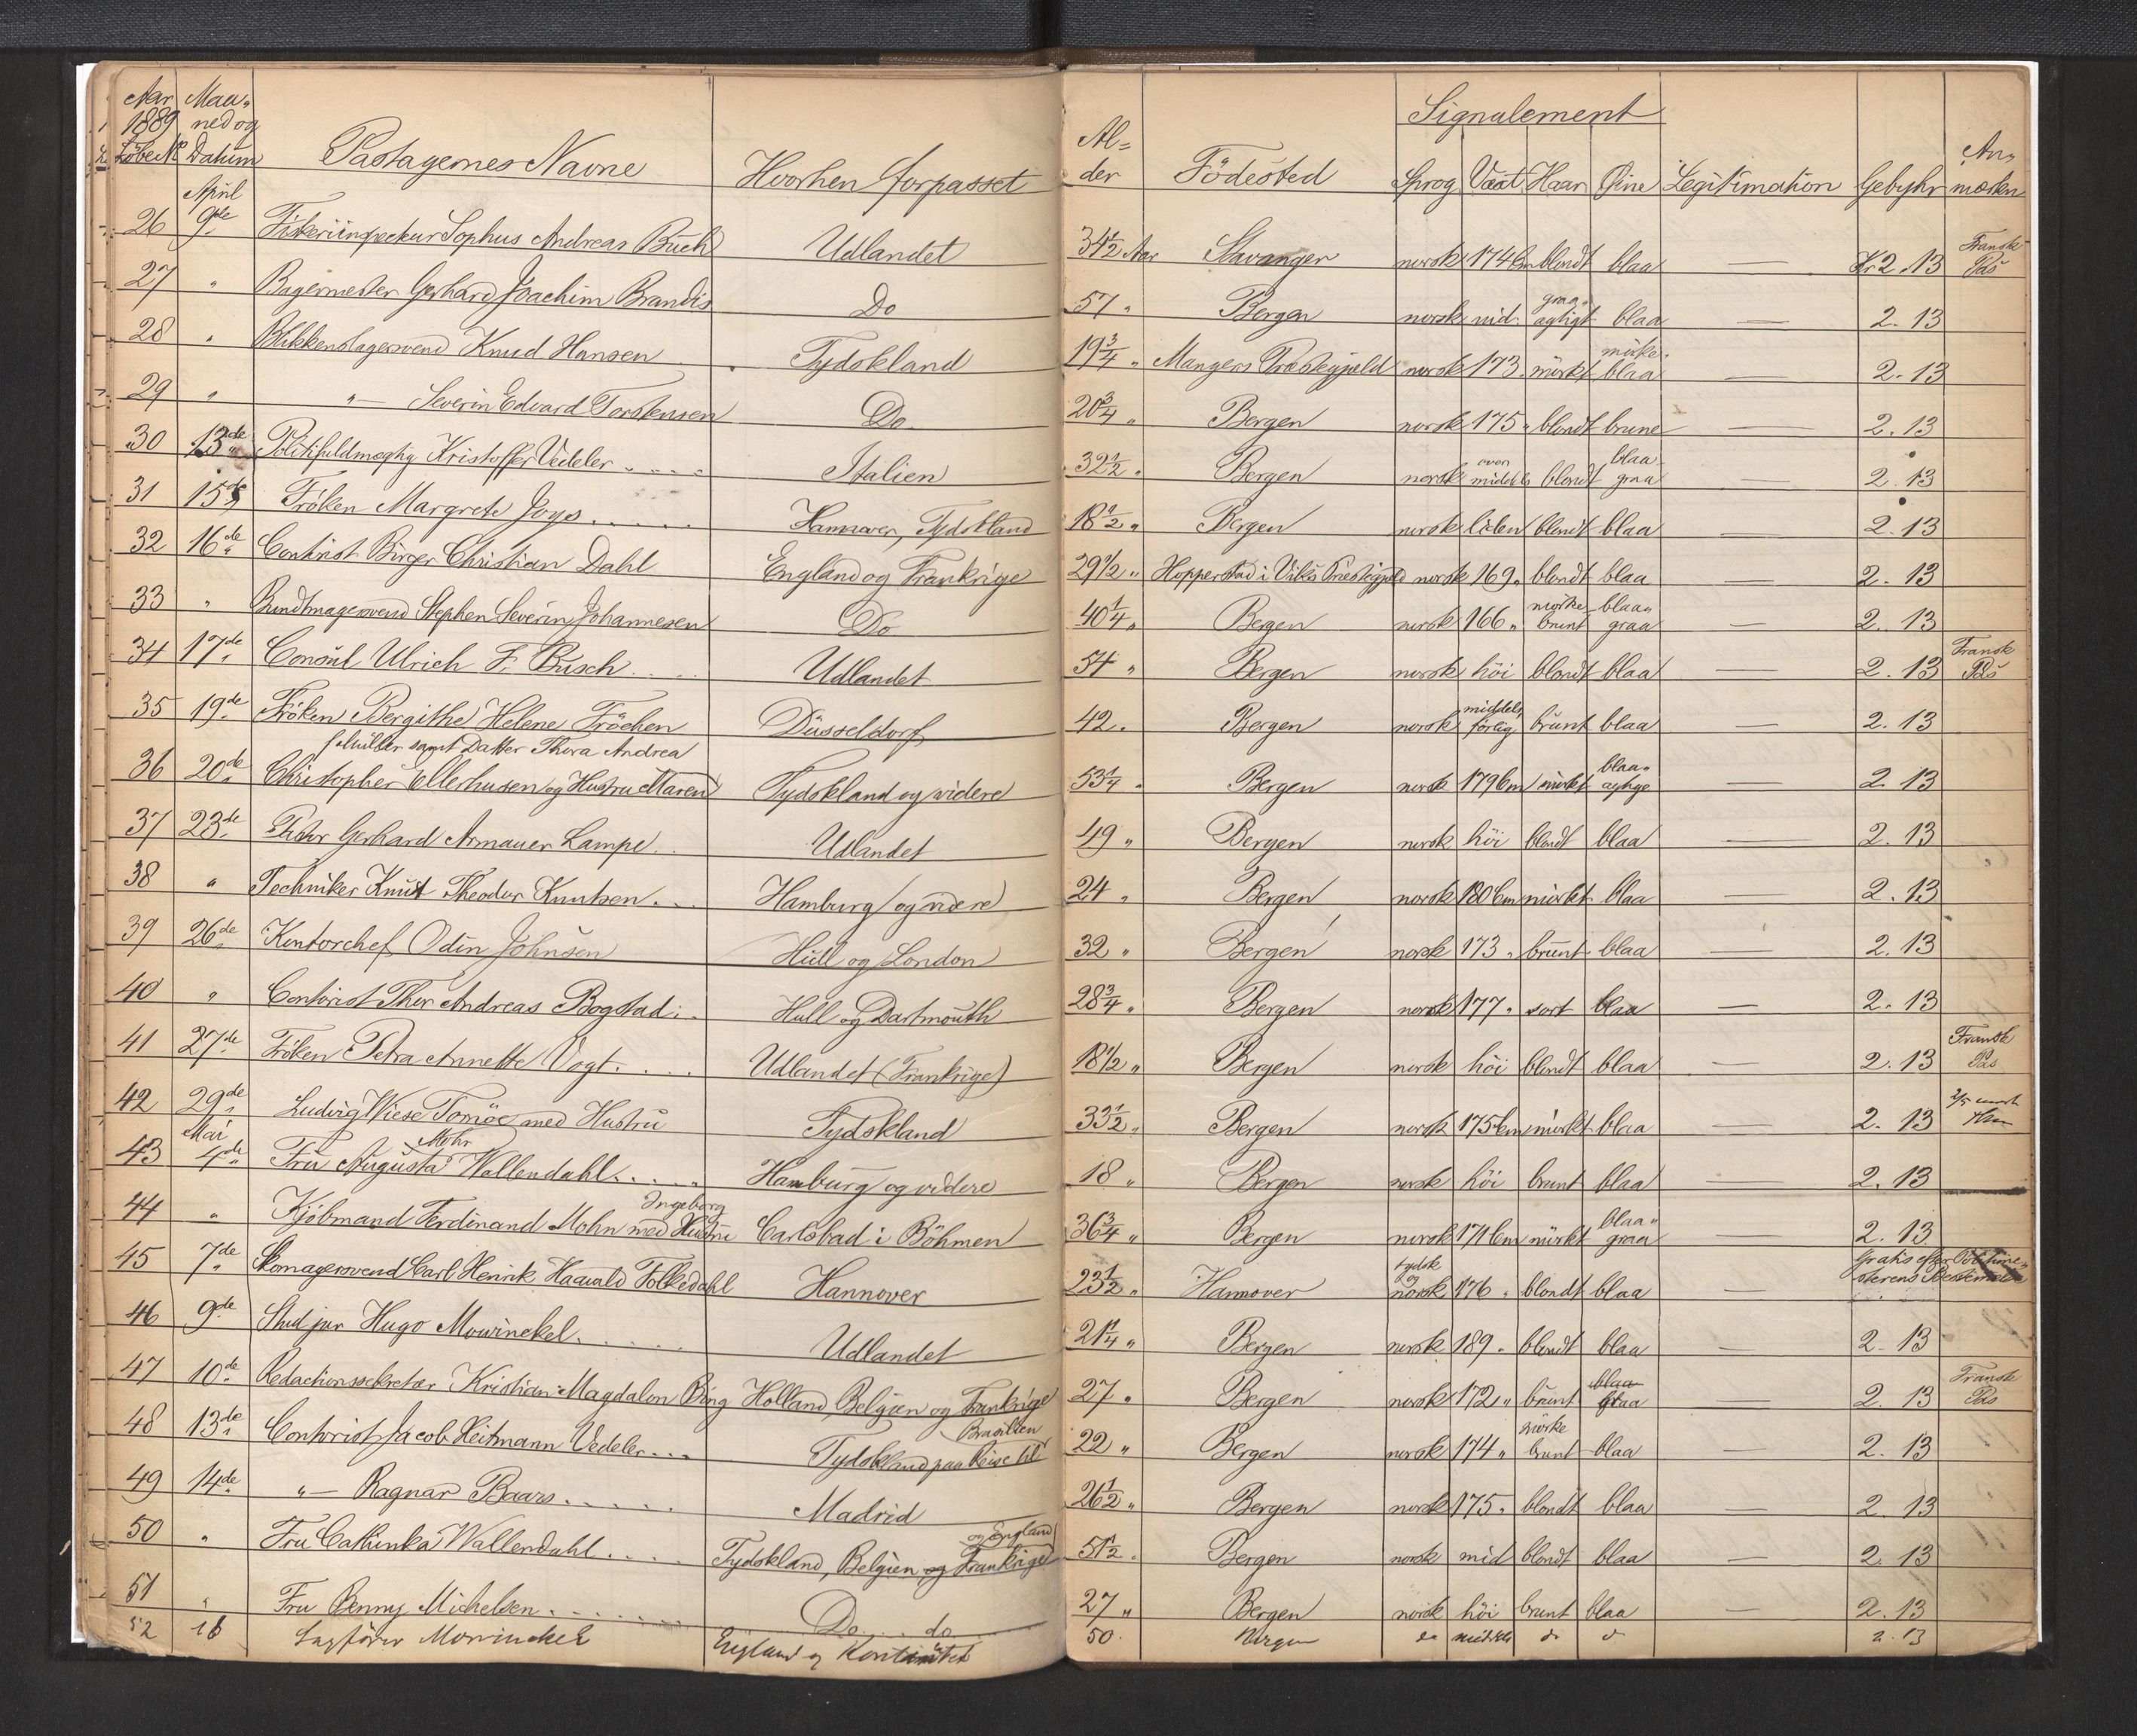 Aar 1889 Löbe № | Maaned og Datum | Pastagernes Navne | Hvorhen forpasset | Alder | Födested | Signalement: Sprog | Vaxt | Haar | Öine | Legitimation | Gebyhr | Anmærken
26 | April 9de | Fiskeriinspecteur Sophus Andreas Buch | Udlandet | 34 1/2 Aar | Stavanger | norsk | 174 Cm | blondt | blaa | — | Kr 2.13 | Franske Pas
27 | " | Bagermester Gerhard Joachim Brandis | Do | 57 " | Bergen | norsk | mid. | graaagtigt | blaa | — | 2.13
28 | " | Blikkenslagersvend Knud Hansen | Tydskland | 19 3/4 " | Mangers Præstegjeld | norsk | 173 " | mörkt | mörkeblaa | — | 2.13
29 | " | "— Severin Edvard Torstensen | Do | 20 3/4 " | Bergen | norsk | 175 " | blondt | brune | — | 2.13
30 | 13de | Politifuldmægtig Kristoffer Vedeler | Italien | 32 1/2 " | Bergen | norsk | over middels | blondt | blaagraa | — | 2.13
31 | 15de | Fröken Margrete Joys | Hannover, Tydskland | 18 1/2 " | Bergen | norsk | liden | blondt | blaa | — | 2.13
32 | 16de | Contorist Birger Christian Dahl | England og Frankrige | 29 1/2 " | Hopperstad i Viks Præstegjeld | norsk | 169 " | blondt | blaa | — | 2.13
33 | " | Bundtmagersvend Stephen Severin Johannesen | Do | 40 1/4 " | Bergen | norsk | 166 " | mörkebrunt | blaagraa | — | 2.13
34 | 17de | Consul Ulrich F. Busch | Udlandet | 54 " | Bergen | norsk | höi | blondt | blaa | — | 2.13 | Fransk Pas
35 | 19de | Fröken Bergithe Helene Fröchen | Düsseldorf | 42 " | Bergen | norsk | middels förlig | brunt | blaa | — | 2.13
36 | 20de | Christopher Ellerhusen og Hustru Maren f. Müller samt Datter Thora Andrea | Tydskland og videre | 53 1/4 " | Bergen | norsk | 179 Cm | mörkt | blaaagtige | — | 2.13
37 | 23de | Gerhard Armauer Lampe | Udlandet | 49 " | Bergen | norsk | höi | blondt | blaa | — | 2.13
38 | " | Techniker Knut Theodor Knutsen | Hamburg og videre | 24 " | Bergen | norsk | 180 Cm | mörkt | blaa | — | 2.13
39 | 26de | Kontorchef Odin Johnsen | Hull og London | 32 " | Bergen | norsk | 173 " | brunt | blaa | — | 2.13
40 | " | Contorist Thor Andreas Bogstad | Hull og Dartmouth | 28 3/4 " | Bergen | norsk | 177 " | sort | blaa | — | 2.13
41 | 27de | Fröken Petra Annette Vogt | Udlandet (Frankrige) | 18 1/2 " | Bergen | norsk | höi | blondt | blaa | — | 2.13 | Fransk Pas
42 | 29de | Ludvig Wiese Tornöe med Hustru | Tydskland | 33 1/2 " | Bergen | norsk | 175 Cm | mörkt | blaa | — | 2.13
43 | Mai 4de | Fru Augusta Mohr Wallendahl | Hamburg og videre | 18 " | Bergen | norsk | höi | brunt | blaa | — | 2.13
44 | " | Kjöbmand Ferdinand Mohn med Hustru Ingeborg | Carlsbad i Böhmen | 36 3/4 " | Bergen | norsk | 171 Cm | mörkt | blaagraa | — | 2.13
45 | 7de | Skomagersvend Carl Henrik Haavald Folkedahl | Hannover | 23 1/2 " | Hannover | tydsk og norsk | 176 " | blondt | blaa | — | Gratis efter Politimesterens Bestemmelse
46 | 9de | Stud jur Hugo Mowinckel | Udlandet | 21 1/4 " | Bergen | norsk | 189 " | blondt | blaa | — | 2.13
47 | 10de | Redactionssekretær Kristian Magdalon Bing | Holland, Belgien og Frankrige | 27 " | Bergen | norsk | 172 " | brunt | blaa graa | — | 2.13 | Fransk Pas
48 | 13de | Contorist Jacob Heitmann Vedeler | Tydskland paa Reise til Brasilien | 22 " | Bergen | norsk | 174 " | mörkebrunt | blaa | — | 2.13
49 | 14de | "— Ragnar Baars | Madrid | 26 1/2 " | Bergen | norsk | 175 " | blondt | blaa | — | 2.13
50 | " | Fru Cathinka Wallendahl | Tydskland, Belgien og Frankrige og England | 51 1/2 " | Bergen | norsk | mid | blondt | blaa | — | 2.13
51 | " | Fru Benny Michelsen | Do do | 27 " | Bergen | norsk | höi | brunt | blaa | — | 2.13
52 | 16 | Sagförer Mowinckel | England og Kontinentet | 50 | Bergen | do | middels | do | do | 2.13